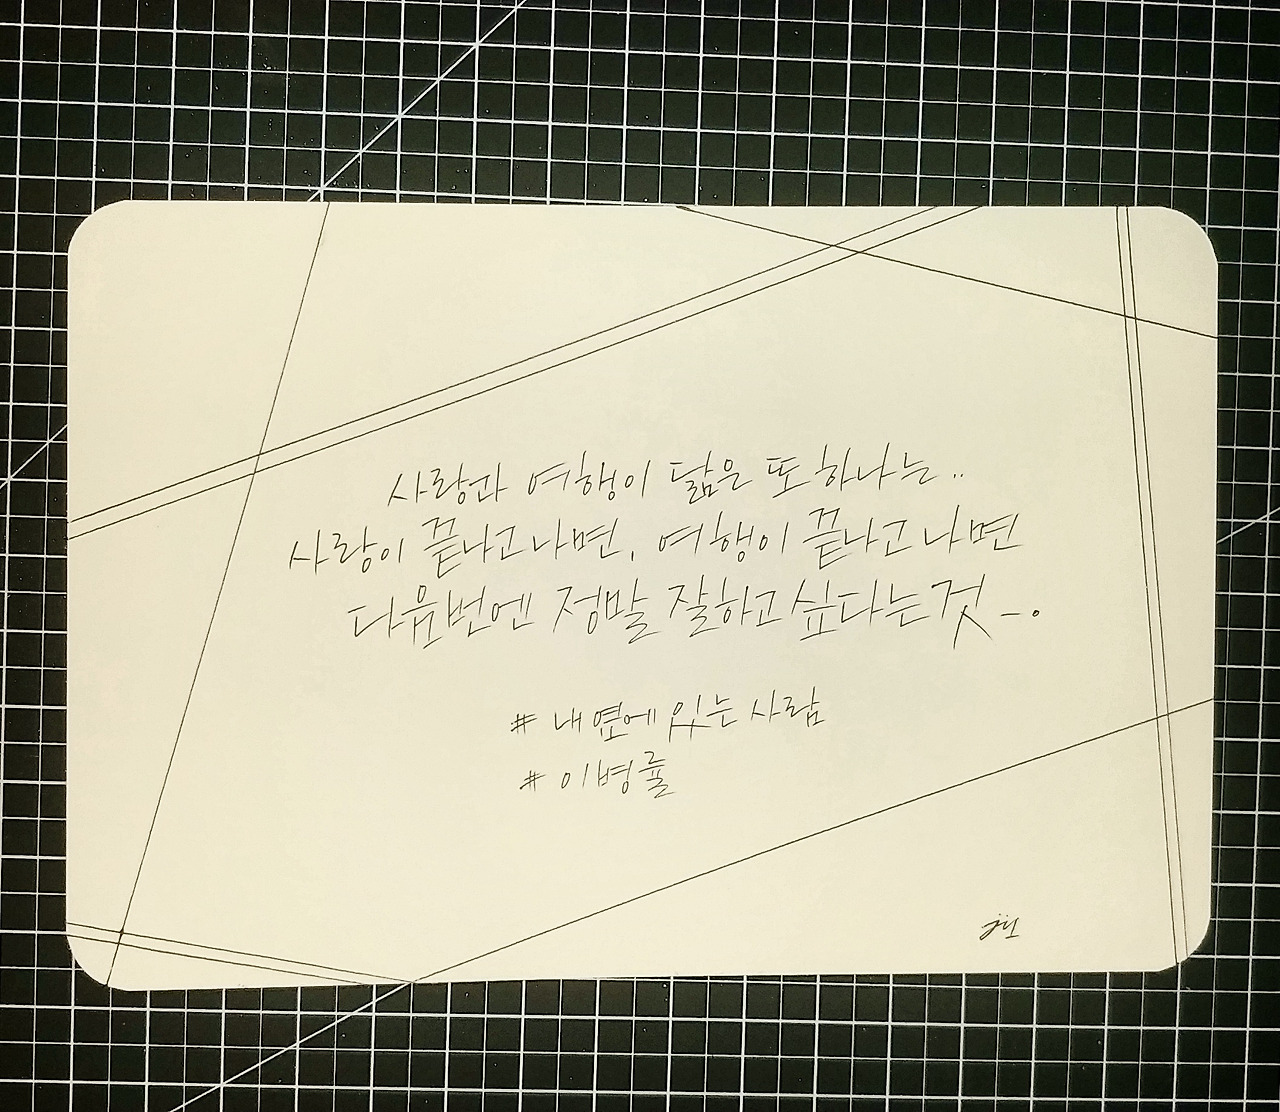 사랑과 여행이 닮은 또 하나는..
사랑이 끝나고 나면, 여행이 끝나고 나면
다음번엔 정말 잘하고 싶다는 것_.
# 내 옆에 있는 사람
# 이병률